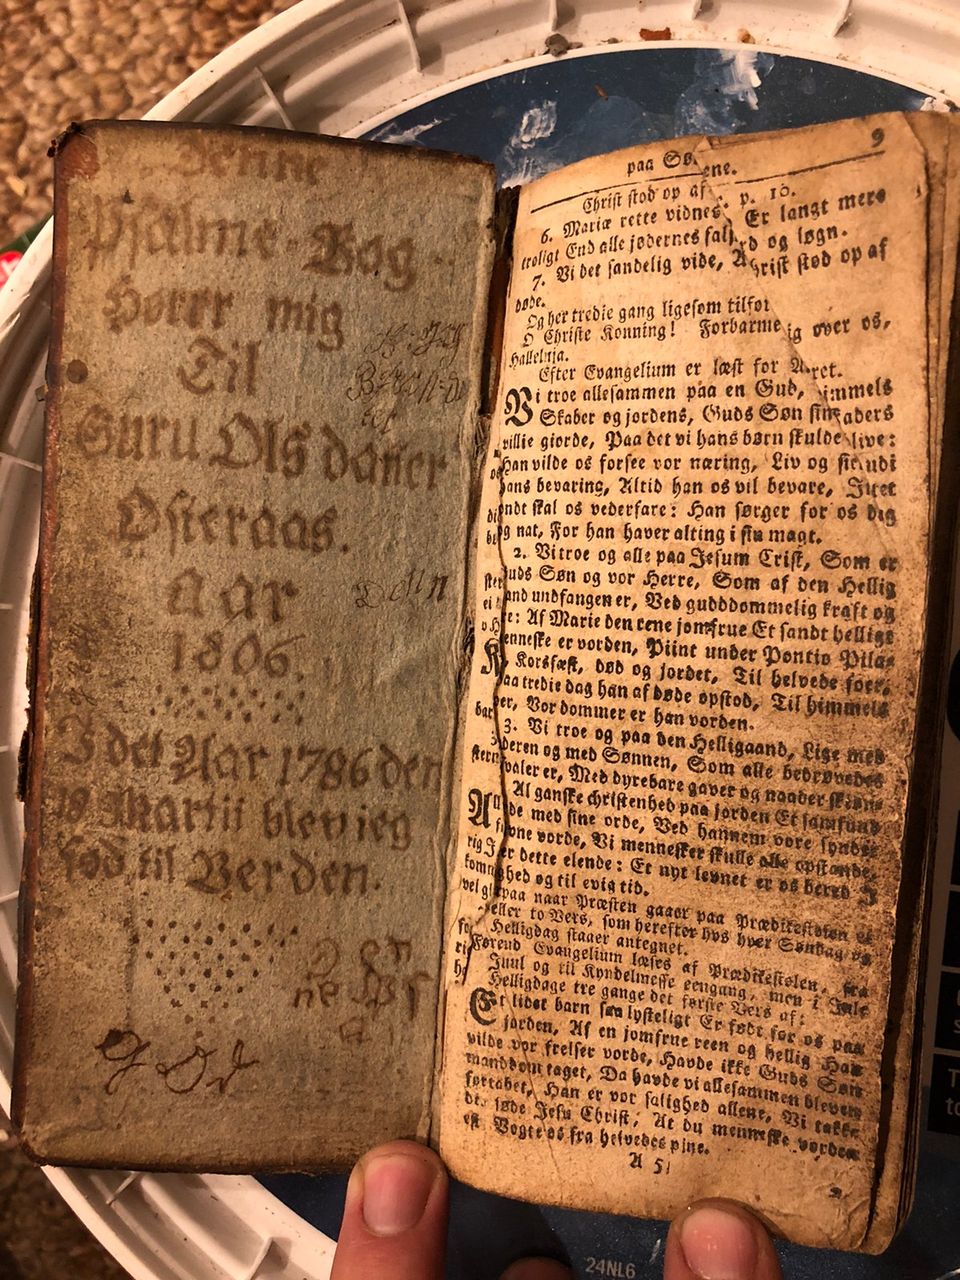 Denne
Psalme Bog
Hører mig
Til
Guri Olsdatter
Østeraas.
aar
1806
I det Aar 1786 den
18 Martii blev ieg
fød til Verden.
G O D
paa Sø ene. 9
Christ stod op af p. 10.
6. Mariæ rette vidnes Er langt mere
troligt End alle jødernes fal d og løgn.
7. Vi det sandelig vide, Christ stod op af
døde.
Og her tredie gang ligesom tilfor
O Christe Konning! Forbarme ig over os,
Halleluja.
Efter Evangelium er læst for A ret.
Vi troe allesammen paa en Gud, immels
Skaber og jordens, Guds Søn sin aders
villie giorde, Paa det vi hans børn skulde live:
Han vilde os forsee vor næring, Liv og
hans bevaring, Altid han os vil bevare, Intet
ondt skal os vederfare: Han sørger for os dag
og nat, For han haver alting i sin magt.
2. Vi troe og alle paa Jesum Crist, Som er
Guds Søn og vor Herre, Som af den Hellig
Aand undfangen er, Ved guddommelig kraft og
: Af Marie den rene jomfrue Et sandt hellige
menneske er vorden, Piint under Pontio Pila-
Korsfæst, død og jordet, Til helvede foer,
Paa tredie dag han af døde opstod, Til himmels
er, Vor dommer er han vorden.
3. Vi troe og paa den Helligaand, Lige med
Faderen og med Sønnen, Som alle bedrøvedes
hsvaler er, Med dyrebare gaver og naader skiøn
Al ganske christenhed paa jorden Et samfund
de med sine orde, Ved hannem vore synder
vorde, Vi mennesker skulle alle opstande,
er dette elende: Et nyt levnet er os bered I
hed og til evig tid.
paa naar Præsten gaaer paa Prædikestolen et
eller to Vers, som herefter hos hver Søndag og
Helligdag staaer antegnet.
Førend Evangelium læses af Prædikestolen, fra
Juul og til Kyndelmesse eengang, men i Jule
Helligdage tre gange det første Vers af:
Et lidet barn saa lysteligt Er født for os paa
jorden, Af en jomfrue reen og hellig Han
vilde vor frelser vorde, Havde ikke Guds Søn
manddom taget, Da havde vi allesammen bleven
fortabet, Han er vor salighed allene, Vi takke
dig søde Jesu Christ, At du menneske vorden
est Vogte os fra helvedes pine.
A 5
24NL6